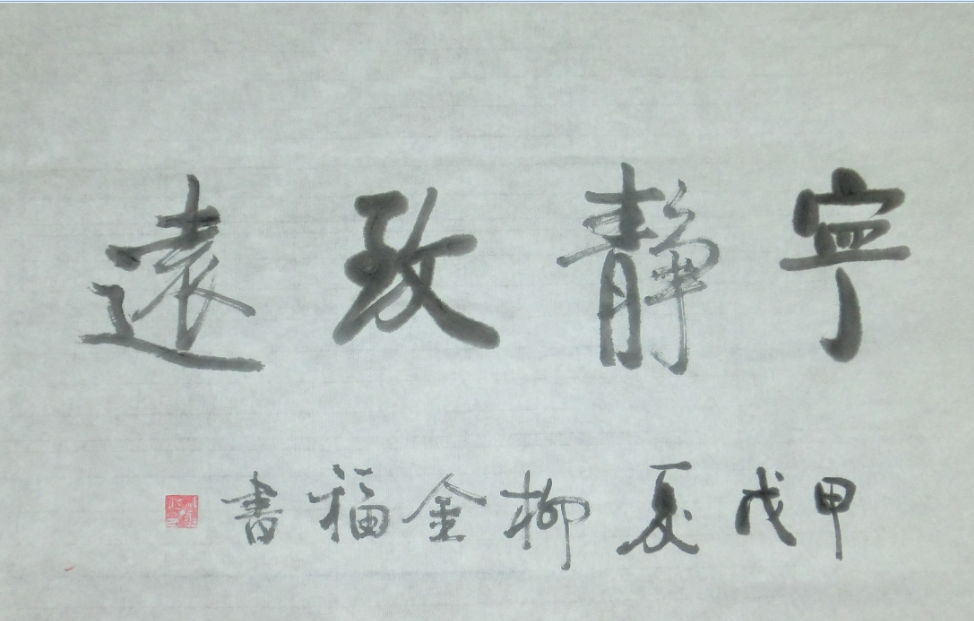 寧靜致遠
甲戊夏柳金福書